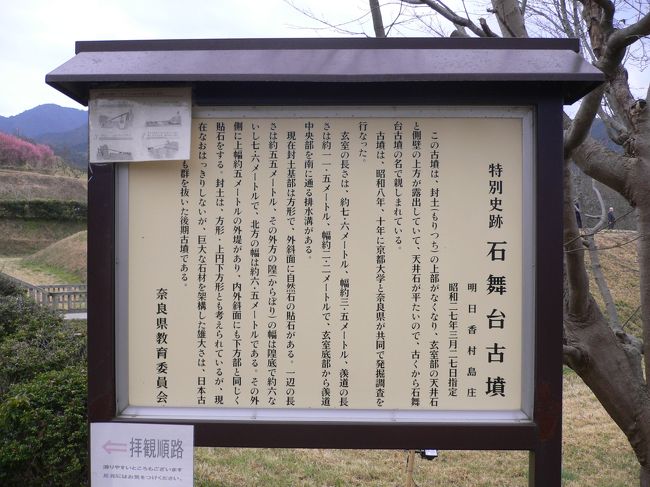 特別史跡 石舞台古墳
明日香村島庄
昭和二七年三月二七日指定
この古墳は、封土(もりつち)の上部がなくなり、玄室部の天井石
と側壁の上方が露出していて、天井石が平たいので、古くから石舞
台古墳の名で親しまれている。
古墳は、昭和八年、十年に京都大学と奈良県が共同で発掘調査を
行なった。
玄室の長さは、約七・六メートル、幅約三・五メートル、羨道の長
さは約一一・五メートル、幅約二・二メートルで、玄室底部から羨道
中央部を南に通る排水溝がある。
現在封土基部は方形で、外斜面に自然石の貼石がある。一辺の長
さは約五五メートル、その外方の隍(からぼり)の幅は隍底で約六な
いし七・六メートルで、北方の幅は約六・五メートルである。その外
側に上幅約五メートルの外堤があり、内外斜面にも下方部と同じく
貼石をする。封土は、方形・上円下方形とも考えられているが、現
在なおはっきりしないが、巨大な石材を架構した雄大さは、日本古
も群を抜いた後期古墳である。
奈良県教育委員会
⇦拝観順路
滑りやすいところもございます
足元にはお気をつけください。